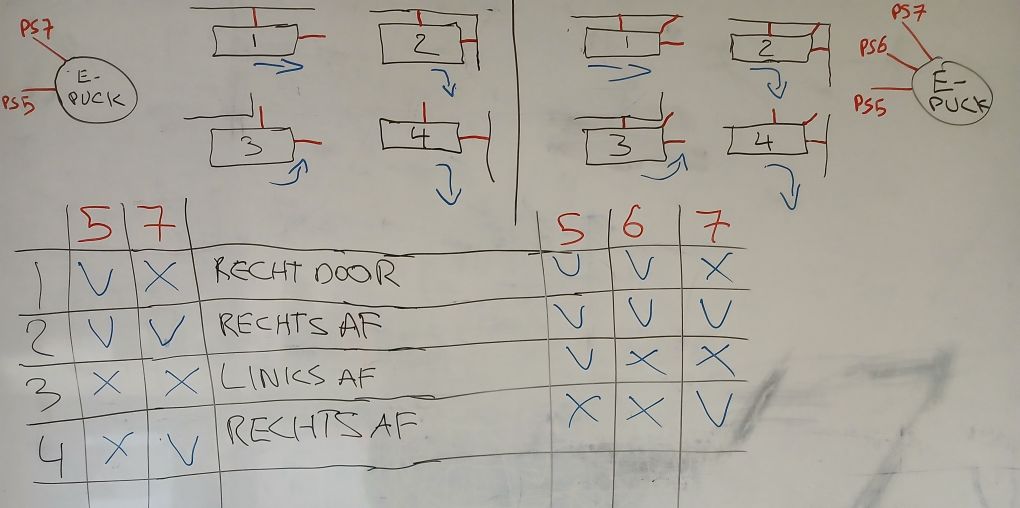 PS7
E-
PUCK
PS5
1
2
3
4
1
2
3
4
PS7
PS6
E-
PUCK
PS5
5 7 5 6 7
1 V X RECHT DOOR V V X
2 V V RECHTS AF V V V
3 X X LINKS AF V X X
4 X V RECHTS AF X X V